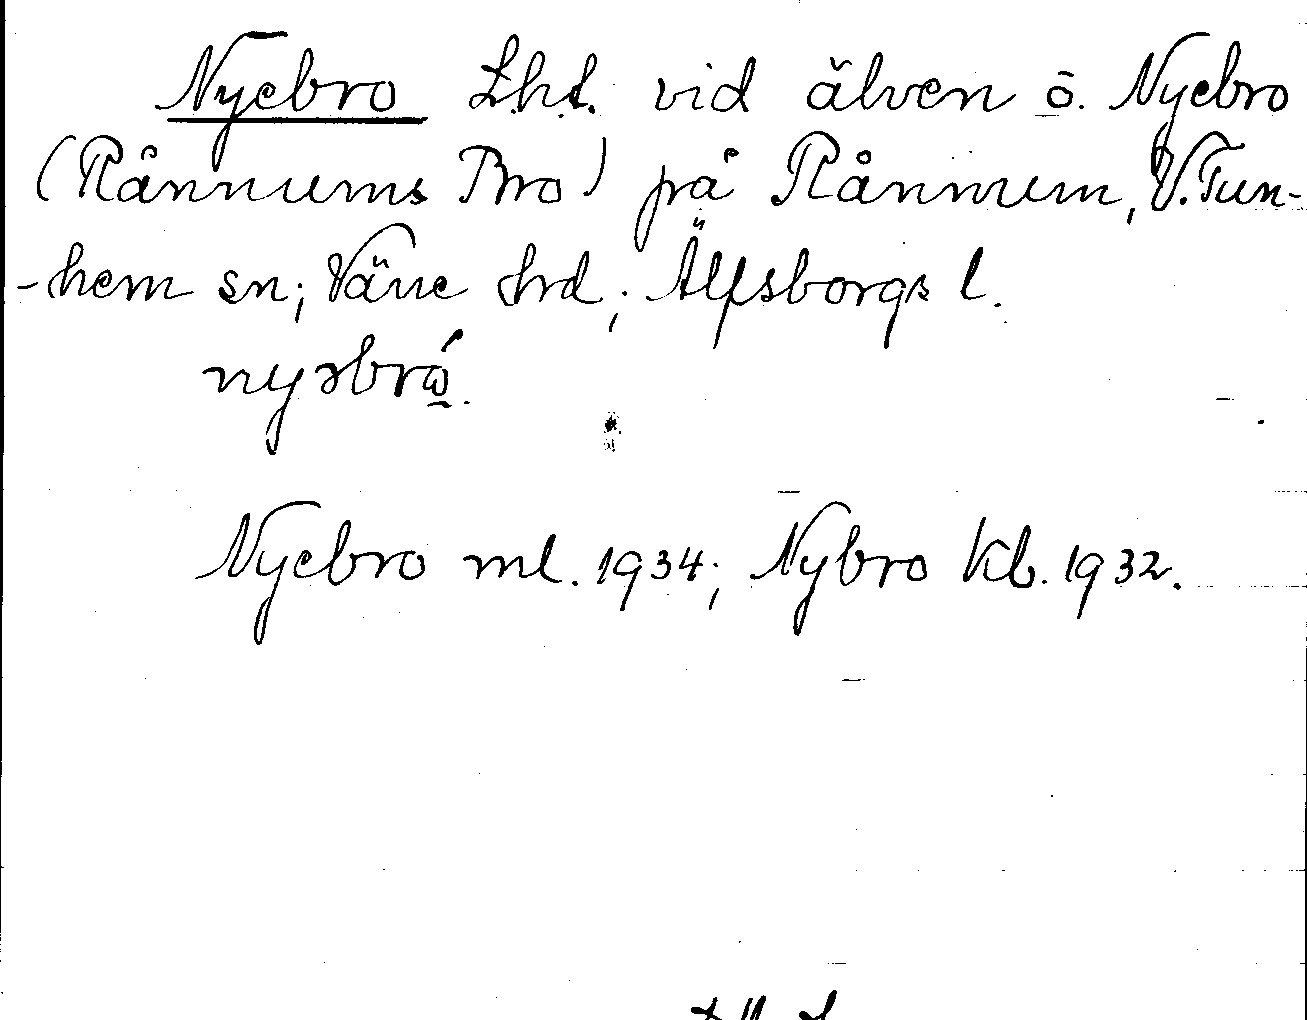 Nyebro Lht. vid älven ö. Nyebro
(Rånnums Bro) på Rånnum, V. Tun-
-hem sn; Väne hrd; Älfsborgs l.
nyəbró.
Nyebro ml. 1934; Nybro kb. 1932.